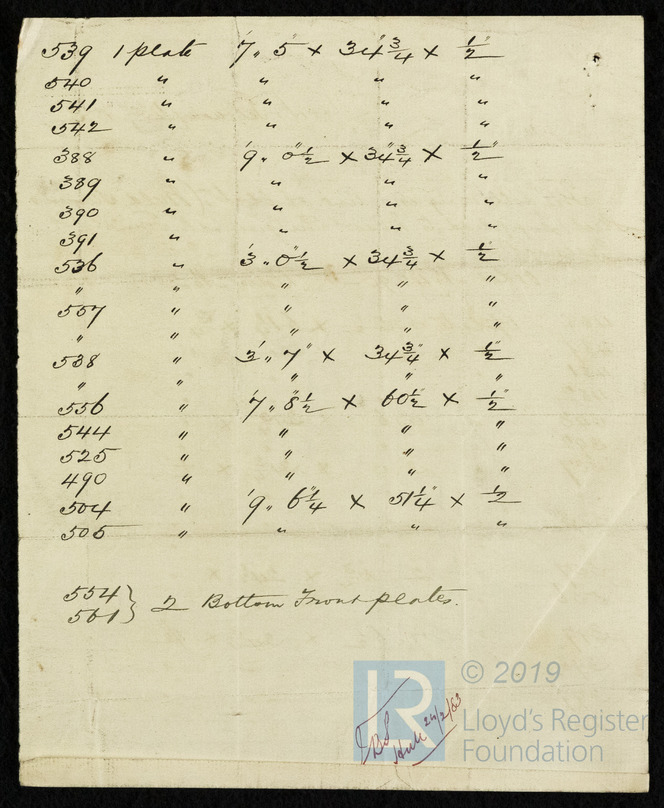 539 1 plate 7'„ 5" × 34 3/4" × 1/2"
540 " " " "
541 " " " "
542 " " " "
388 " 9'„ 0 1/2" × 34 3/4" × 1/2"
389 " " " "
390 " " " "
391 " " " "
536 " 3'„ 0 1/2" × 34 3/4" × 1/2"
" " " " "
557 " " " "
" " " " "
538 " 3'„ 7" × 34 3/4" × 1/2"
" " " " "
556 " 7'„ 8 1/2" × 60 1/2" × 1/2"
544 " " " "
525 " " " "
490 " " " "
504 " 9'„ 6 1/4" × 51 1/4" × 1/2"
505 " " " "
554 } 2 Bottom Front plates.
561
Hull 24/2/83
LR
© 2019
Lloyd's Register
Foundation